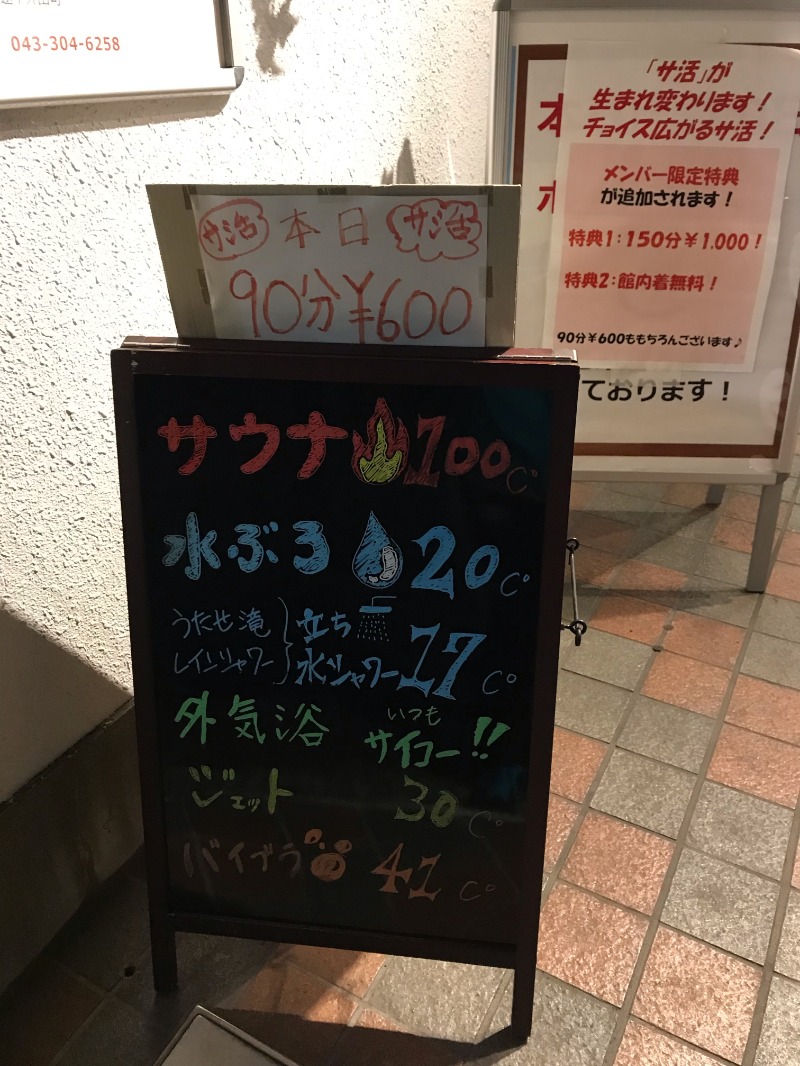 043-304-6258
「サ活」が
生まれ変わります！
チョイス広がるサ活！
メンバー限定特典
が追加されます！
特典1：150分￥1,000！
特典2：館内着無料！
90分￥600ももちろんございます♪
ております！
サ活 本日 サ活
90分￥600
サウナ 100C°
水ぶろ 20C°
うたせ滝 立ち
レインシャワー 水シャワー 17C°
外気浴 いつも サイコー!!
ジェット 30C°
バイブラ 41C°